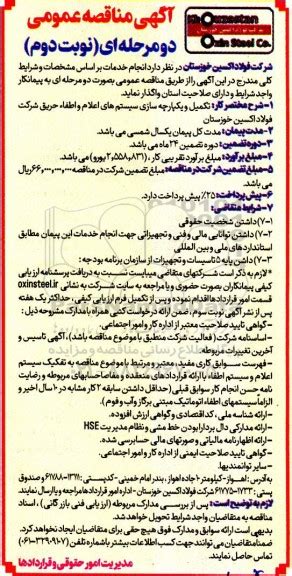 Khouzestan
Oxin Steel Co.
آگهی مناقصه عمومی
دو مرحله ای (نوبت دوم)
شرکت فولاد اکسین خوزستان در نظر دارد انجام خدمات بر اساس مشخصات و شرایط
کلی مندرج در این آگهی را از طریق مناقصه عمومی بصورت دو مرحله ای به پیمانکار
واجد شرایط و دارای صلاحیت استان واگذار نماید.
۱-شرح مختصر کار: تکمیل و یکپارچه سازی سیستم های اعلام و اطفاء حریق شرکت
فولاد اکسین خوزستان
۲-مدت پیمان: مدت کل پیمان یکسال شمسی می باشد.
۳-دوره تضمین: دوره تضمین ۲۴ ماه می باشد.
۴-مبلغ برآورد: مبلغ برآورد تقریبی کار ، (۲،۵۵۸،۸۳۱ یورو) می باشد.
۵-مبلغ تضمین شرکت در مناقصه: مبلغ تضمین شرکت در مناقصه ۶۶،۰۰۰،۰۰۰،۰۰۰ ریال
می باشد.
۶-پیش پرداخت: ۲۵٪ پیش پرداخت دارد.
۷-شرایط متقاضی:
۷-۱) داشتن شخصیت حقوقی
۷-۲) داشتن توانایی مالی و فنی و تجهیزاتی جهت انجام خدمات این پیمان مطابق
استانداردهای ملی و بین المللی
۷-۳) داشتن پایه ۵ تاسیسات و تجهیزات از سازمان برنامه بودجه:
*لازم به ذکر است شرکتهای متقاضی میبایست نسبت به دریافت پرسشنامه ارزیابی
کیفی پیمانکاران بصورت حضوری و یا مراجعه به سایت شرکت به نشانی oxinsteel.ir
قسمت امور قراردادها اقدام نموده و پس از تکمیل فرم ارزیابی کیفی ، حداکثر یک هفته
پس از نشر آگهی نوبت سوم، ضمن ارائه درخواست کتبی همراه با مدارک مشروحه ذیل:
- گواهی تایید صلاحیت معتبر از اداره کار و امور اجتماعی.
- اساسنامه شرکت (فعالیت شرکت منطبق با موضوع مناقصه باشد)، آگهی تاسیس و
آخرین تغییرات مربوطه.
- فهرست سوابق کاری مفید، معتبر و مرتبط با موضوع مناقصه به تفکیک سیستم
اعلام و سیستم اطفاء با ارائه قراردادهای منعقده و مفاصا حسابهای مربوطه و رضایت
نامه حسن انجام کار سوابق قبلی (حداقل داشتن سابقه ۲ کار مشابه در ۱۰ سال اخیر و
الزاما سیستمهای اطفاء اتوماتیک مبتنی برگاز و آب و فوم).
- ارائه شناسه ملی ، کد اقتصادی و گواهی ارزش افزوده.
- ارائه مدارکی دال بر دارا بودن خط مشی و نظام مدیریت HSE
- ارائه اظهارنامه مالیاتی و صورتهای مالی حسابرسی شده.
- گواهی تایید صلاحیت ایمنی از اداره کار و امور اجتماعی.
- سایر توانمندیها.
به آدرس: اهواز- کیلومتر ۱۰ جاده اهواز، بندر امام خمینی - کدپستی: ۶۱۷۸۸-۱۳۱۱۱ و صندوق
پستی : ۱۷۳۳-۶۱۷۷۵ شرکت فولاد اکسین خوزستان - اداره امور قراردادها مراجعه و یا ارسال نمایند.
لازم به توضیح است: پس از بررسی مدارک مربوطه (ارزیابی فنی بازرگانی) ، اسناد
مناقصه به متقاضیان واجد شرایط تحویل خواهد شد.
بدیهی است ارائه سوابق و مدارک فوق هیچ حقی برای متقاضیان ایجاد نخواهد کرد.
ضمنا متقاضیان می توانند جهت کسب اطلاعات بیشتر با شماره تلفن
تماس حاصل نمایند.
مدیریت امور حقوقی و قراردادها